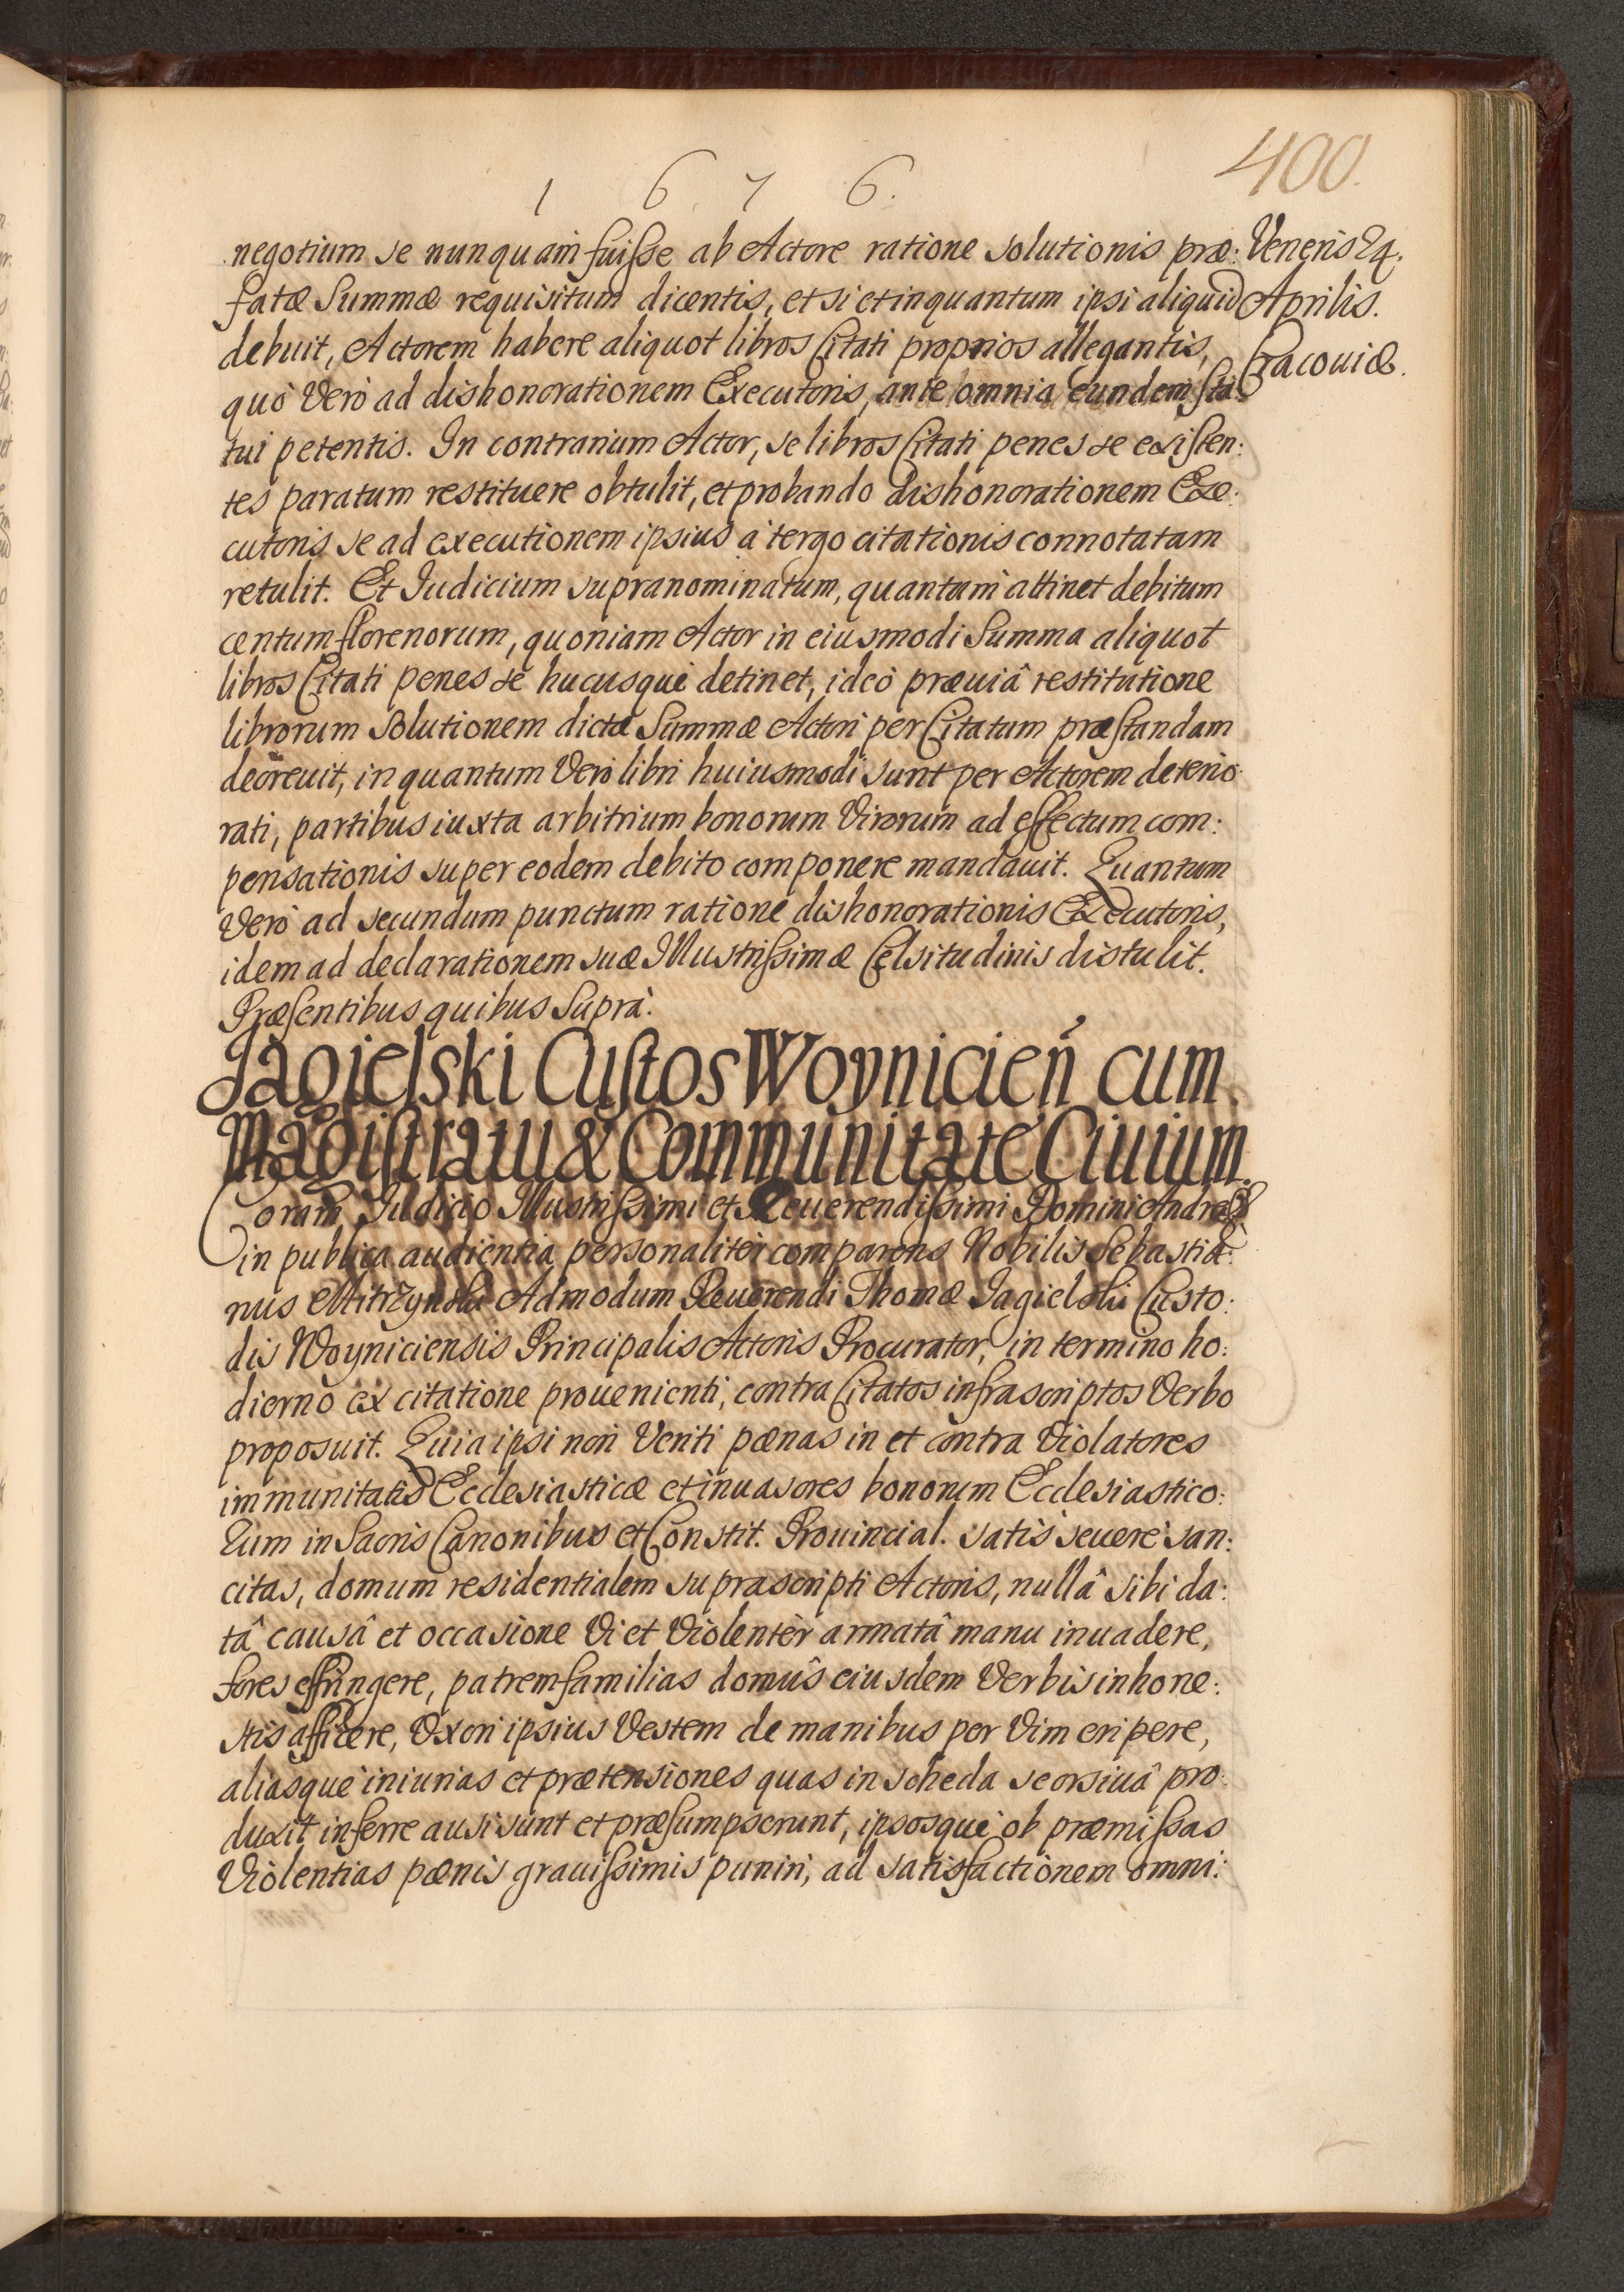 400.
1 6 7 6.
Veneris 24.
Aprilis.
Cracouiæ.
negotium se nunquam fuisse ab Actore ratione solutionis præ:
fatæ Summæ requisitum dicentis, et si et inquantum ipsi aliquid
debuit, Actorem habere aliquot libros Citati proprios allegantis,
quò Verò ad dishonorationem Executoris, ante omnia eundem sta:
tui petentis. In contrarium Actor, se libros Citati penes se existen:
tes paratum restituere obtulit, et probando dishonorationem Exe:
cutoris se ad executionem ipsius à tergo citationis connotatam
retulit. Et Iudicium supranominatum, quantum attinet debitum
centum florenorum, quoniam Actor in eiusmodi Summa aliquot
libros Citati penes se hucusquè detinet, ideò præuiâ restitutione
librorum solutionem dictæ Summæ Actori per Citatum præstandam
decreuit, in quantum Verò libri huiusmodi sunt per Actorem deterio:
rati, partibus iuxta arbitrium bonorum Virorum ad effectum com:
pensationis super eodem debito componere mandauit. Quantum
Verò ad secundum punctum ratione dishonorationis Executoris,
idem ad declarationem suæ Illustrissimæ Celsitudinis distulit.
Præsentibus quibus Suprà.
Jagielski Custos Woynicień cum
Magistratu & Communitate Ciuium.
Coram Iudicio Illustrissimi et Reuerendissimi Domini Andreæ
in publica audientia personaliter comparens Nobilis Sebastia:
nus Mitrzynski Admodum Reuerendi Thomæ Jagielski Custo:
dis Woyniciensis Principalis Actoris Procurator, in termino ho:
dierno ex citatione prouenienti, contra Citatos infrascriptos Verbo
proposuit. Quia ipsi non Veriti pœnas in et contra Violatores
immunitatis Ecclesiasticæ et inuasores bonorum Ecclesiastico:
rum in Sacris Canonibus et Constit. Prouincial. satis seuerè san:
citas, domum residentialem suprascripti Actoris, nullâ sibi da:
tâ causâ et occasione Vi et Violentèr armatâ manu inuadere,
fores effringere, patremfamilias domûs eiusdem Verbis inhone:
stis afficere, Uxori ipsius Vestem de manibus per Vim eripere,
aliasquè iniurias et prætensiones quas in scheda seorsiuâ pro:
duxit inferre ausi sunt et præsumpserunt, ipsosquè ob præmissas
Violentias pœnis grauissimis puniri, ad satisfactionem omni: